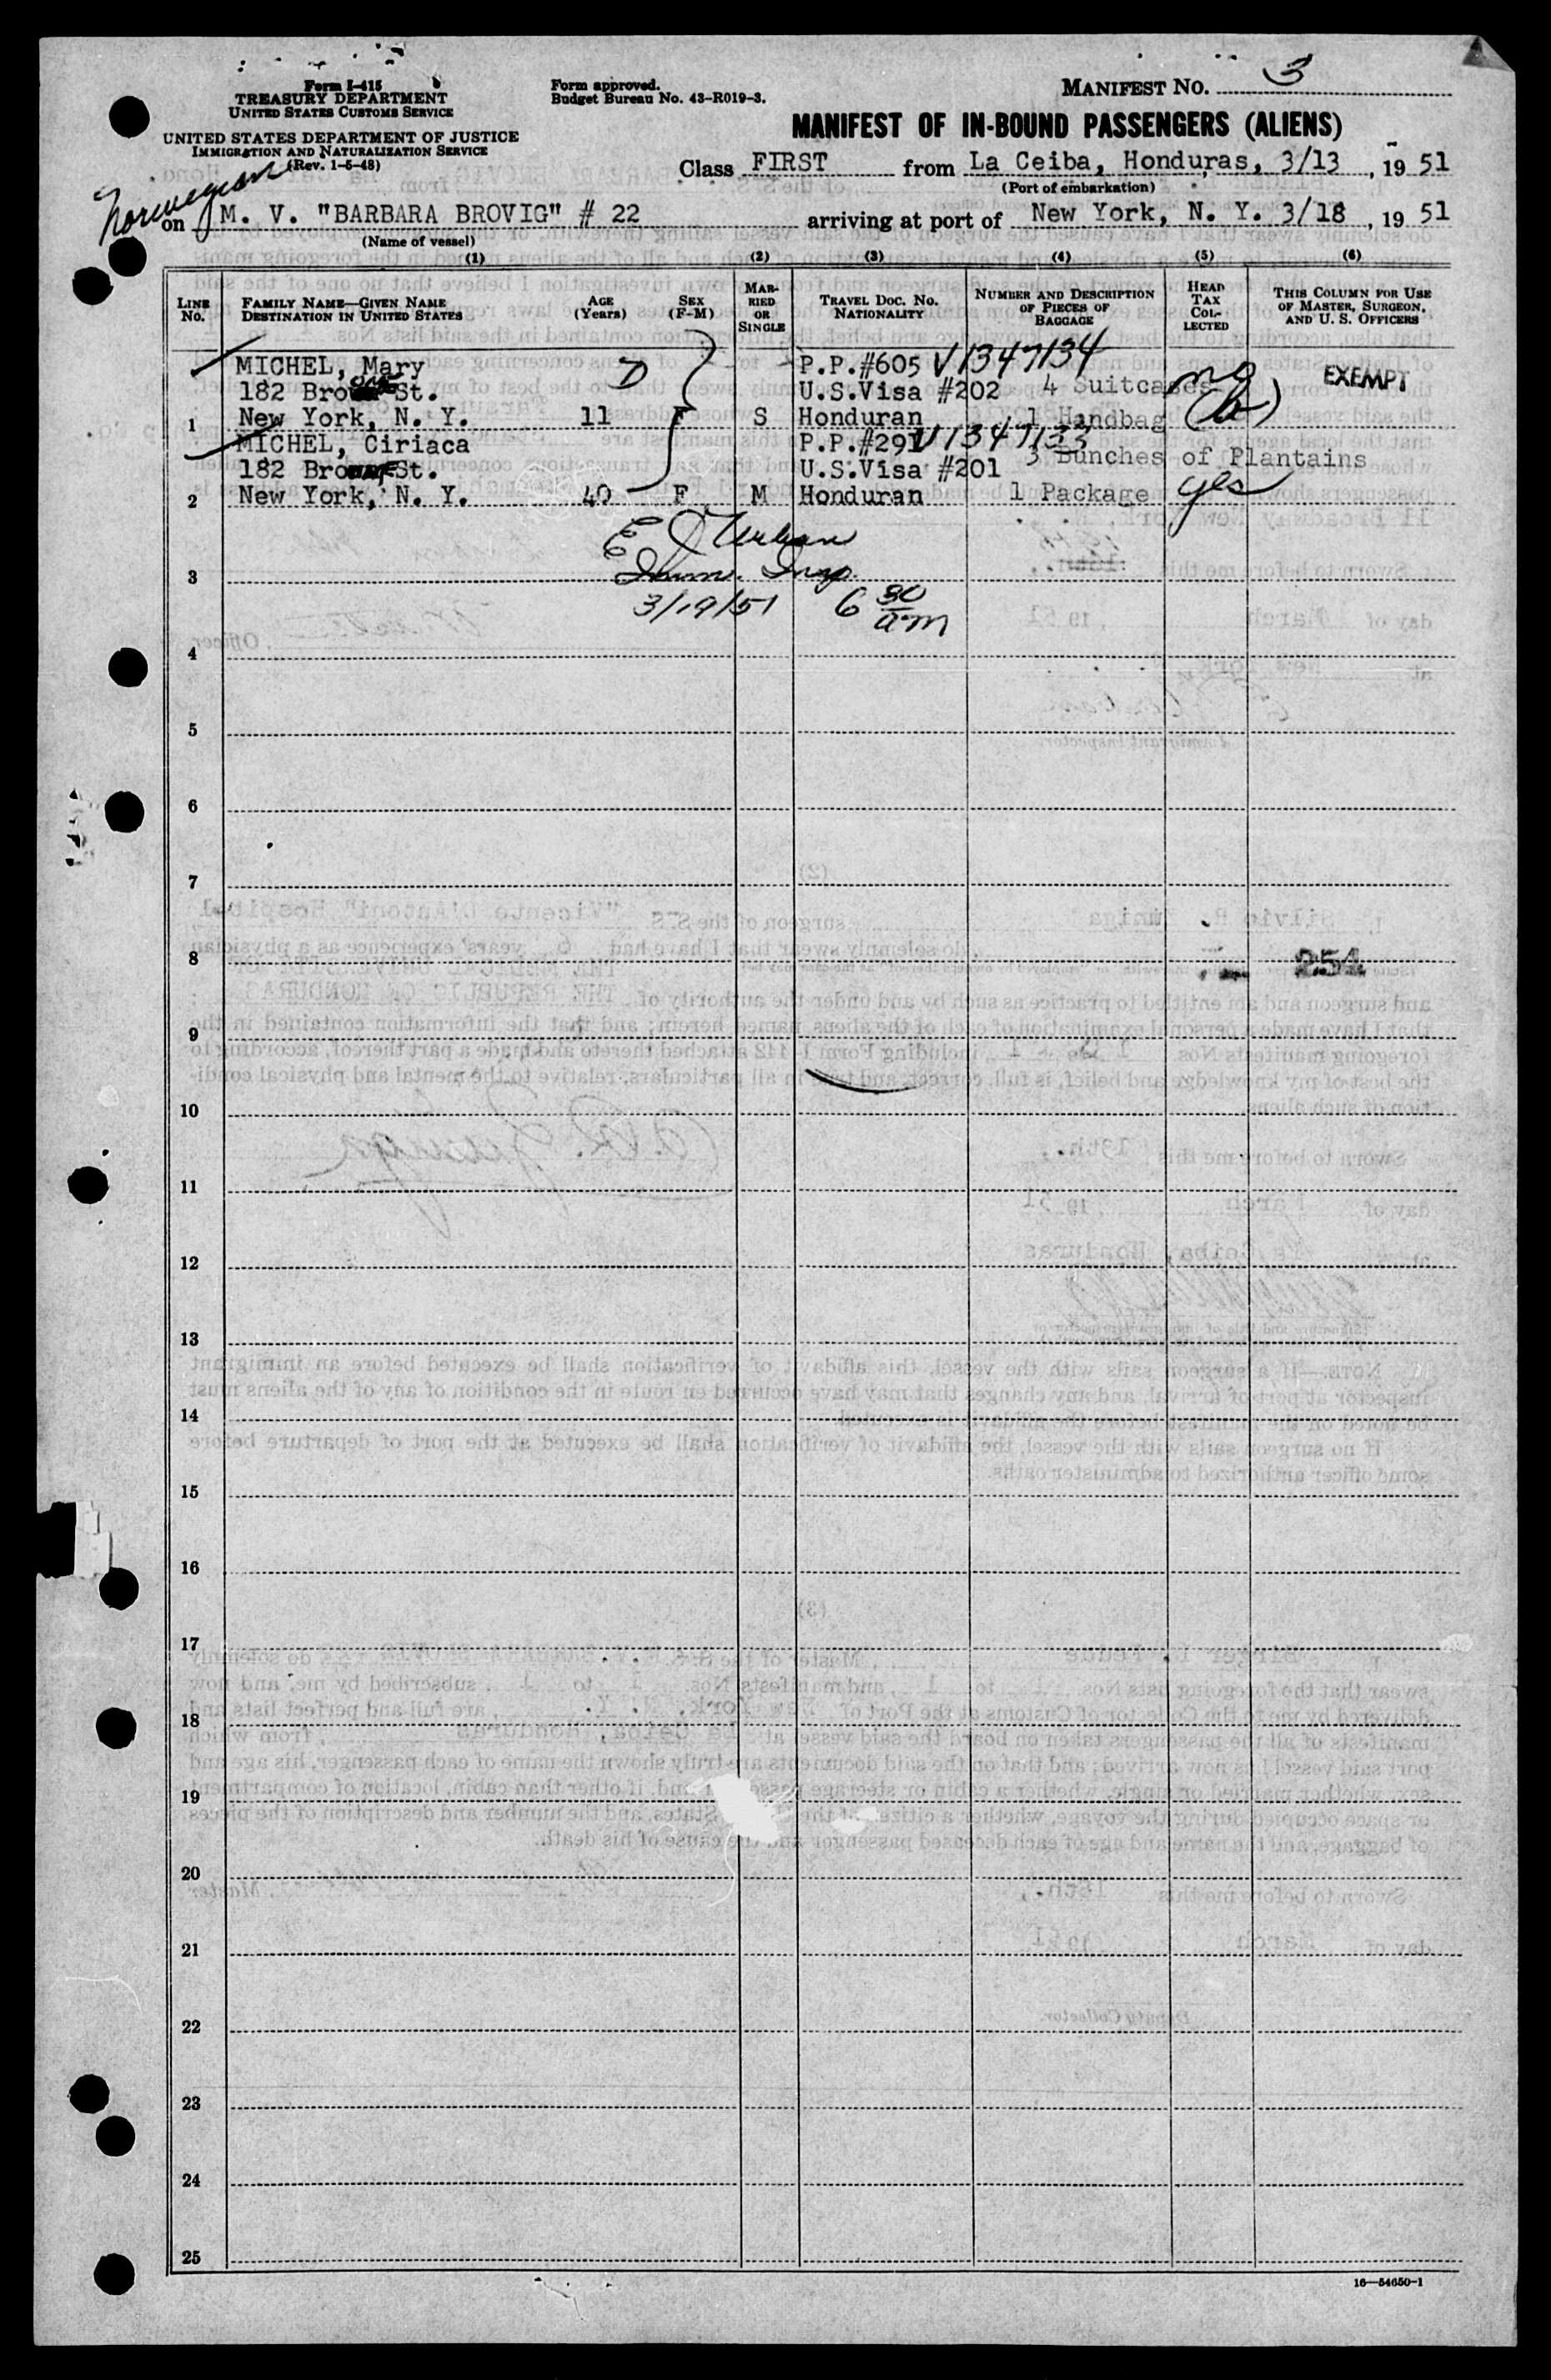 Form I-415
TREASURY DEPARTMENT
UNITED STATES CUSTOMS SERVICE
UNITED STATES DEPARTMENT OF JUSTICE
IMMIGRATION AND NATURALIZATION SERVICE
(Rev. 1-5-48)
Form approved.
Budget Bureau No. 43-R019-3.
MANIFEST NO. 3
MANIFEST OF IN-BOUND PASSENGERS (ALIENS)
Class FIRST from La Ceiba, Honduras, 3/13, 19 51
(Port of embarkation)
Norwegian
on M. V. "BARBARA BROVIG" # 22 arriving at port of New York, N. Y. 3/18, 19 51
(Name of vessel)
(1) (2) (3) (4) (5) (6)
LINE No. FAMILY NAME—GIVEN NAME DESTINATION IN UNITED STATES AGE (Years) SEX (F-M) MARRIED OR SINGLE TRAVEL DOC. NO. NATIONALITY NUMBER AND DESCRIPTION OF PIECES OF BAGGAGE HEAD TAX COLLECTED THIS COLUMN FOR USE OF MASTER, SURGEON, AND U. S. OFFICERS
MICHEL, Mary D P.P.#605 V1347134
182 St. U.S.Visa #202 4 Suitcases no EXEMPT
1 New York, N. Y. 11 F S Honduran 1 Handbag
MICHEL, Ciriaca P.P.#291 V1347133
182 St. U.S.Visa #201 3 Bunches of Plantains
2 New York, N. Y. 40 F M Honduran 1 Package yes
E J Urban
3 Imm. Insp.
3/19/51 6 30 am
4
5
6
7
8 254
9
10
11
12
13
14
15
16
17
18
19
20
21
22
23
24
25
16—54650-1